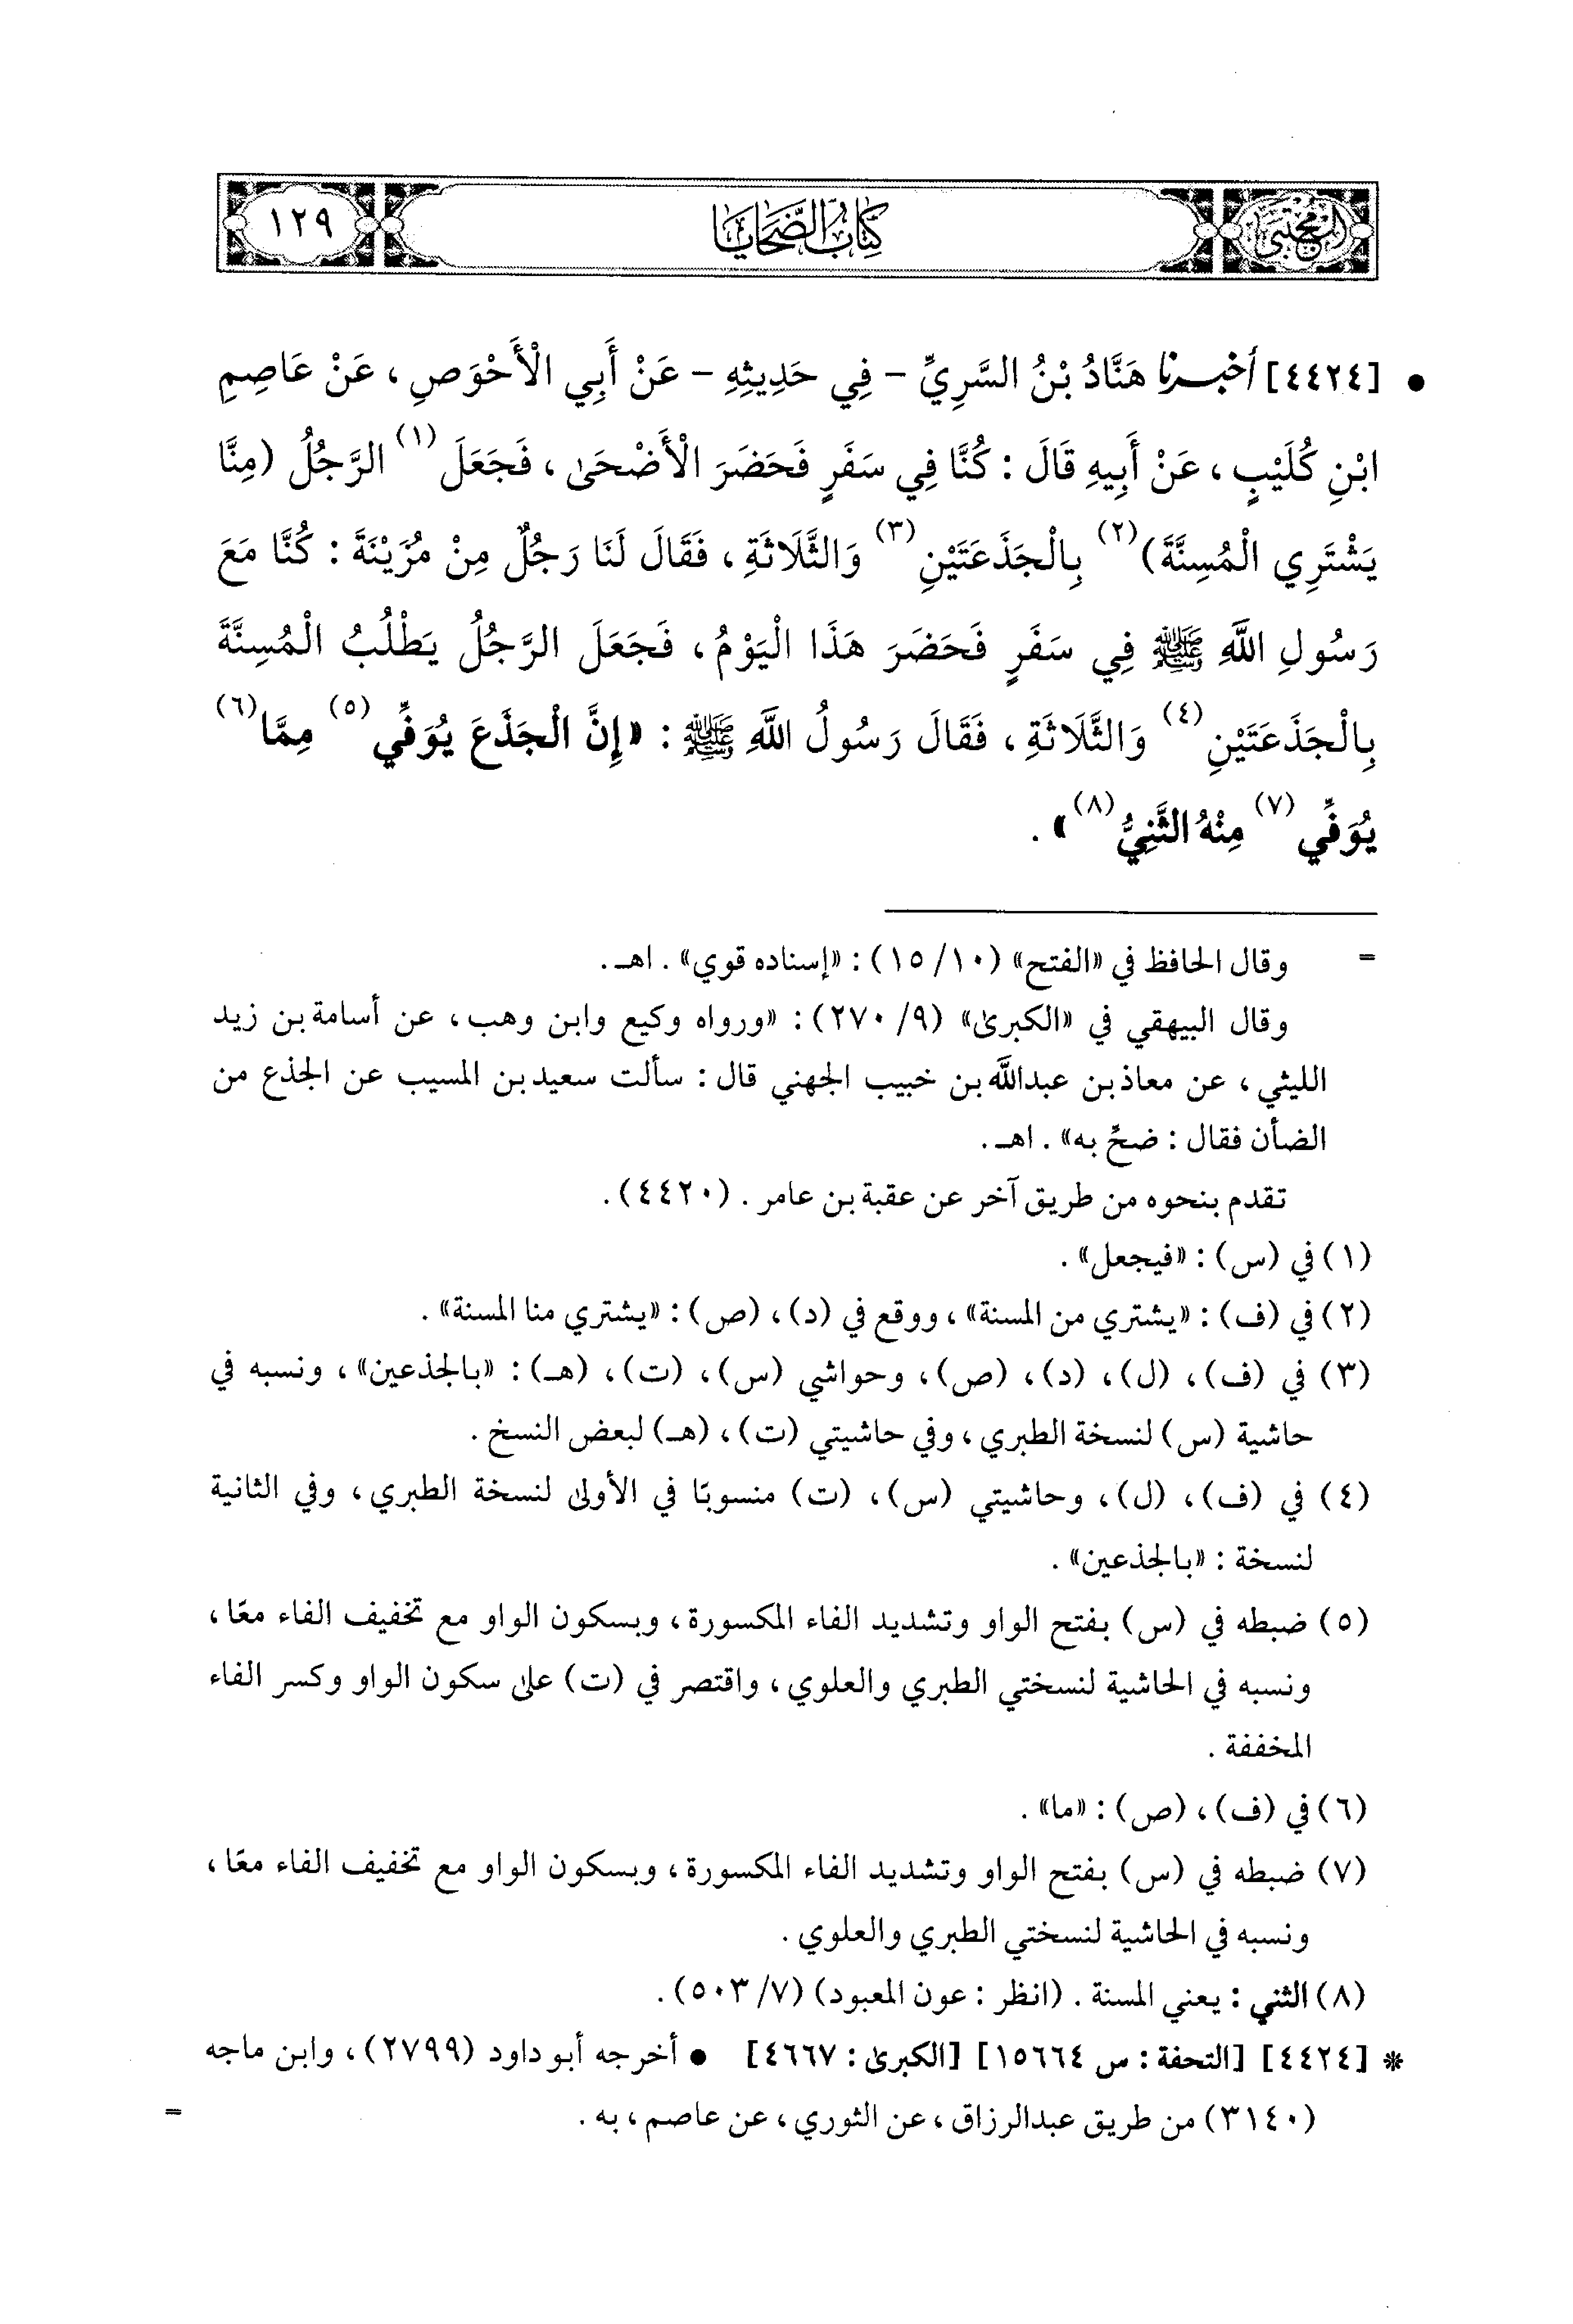 المجتبى
كتاب الضحايا
١٢٩
• [٤٤٢٤] أخبرنا هَنَّادُ بْنُ السَّرِيِّ - فِي حَدِيثِهِ - عَنْ أَبِي الْأَحْوَصِ ، عَنْ عَاصِمِ
ابْنِ كُلَيْبٍ ، عَنْ أَبِيهِ قَالَ : كُنَّا فِي سَفَرٍ فَحَضَرَ الْأَضْحَىٰ ، فَجَعَلَ (١) الرَّجُلُ (مِنَّا
يَشْتَرِي الْمُسِنَّةَ) (٢) بِالْجَذَعَتَيْنِ (٣) وَالثَّلَاثَةِ ، فَقَالَ لَنَا رَجُلٌ مِنْ مُزَيْنَةَ : كُنَّا مَعَ
رَسُولِ اللَّهِ ﷺ فِي سَفَرٍ فَحَضَرَ هَذَا الْيَوْمُ ، فَجَعَلَ الرَّجُلُ يَطْلُبُ الْمُسِنَّةَ
بِالْجَذَعَتَيْنِ (٤) وَالثَّلَاثَةِ ، فَقَالَ رَسُولُ اللَّهِ ﷺ : «إِنَّ الْجَذَعَ يُوَفِّي (٥) مِمَّا (٦)
يُوَفِّي (٧) مِنْهُ الثَّنِيُّ (٨)» .
= وقال الحافظ في «الفتح» (١٠/ ١٥) : «إسناده قوي» . اهـ .
وقال البيهقي في «الكبرىٰ» (٩/ ٢٧٠) : «ورواه وكيع وابن وهب ، عن أسامة بن زيد
الليثي ، عن معاذ بن عبداللَّه بن خبيب الجهني قال : سألت سعيد بن المسيب عن الجذع من
الضأن فقال : ضحِّ به» . اهـ .
تقدم بنحوه من طريق آخر عن عقبة بن عامر . (٤٤٢٠) .
(١) في (س) : «فيجعل» .
(٢) في (ف) : «يشتري من المسنة» ، ووقع في (د) ، (ص) : «يشتري منا المسنة» .
(٣) في (ف) ، (ل) ، (د) ، (ص) ، وحواشي (س) ، (ت) ، (هـ) : «بالجذعين» ، ونسبه في
حاشية (س) لنسخة الطبري ، وفي حاشيتي (ت) ، (هـ) لبعض النسخ .
(٤) في (ف) ، (ل) ، وحاشيتي (س) ، (ت) منسوبًا في الأولىٰ لنسخة الطبري ، وفي الثانية
لنسخة : «بالجذعين» .
(٥) ضبطه في (س) بفتح الواو وتشديد الفاء المكسورة ، وبسكون الواو مع تخفيف الفاء معًا ،
ونسبه في الحاشية لنسختي الطبري والعلوي ، واقتصر في (ت) علىٰ سكون الواو وكسر الفاء
المخففة .
(٦) في (ف) ، (ص) : «ما» .
(٧) ضبطه في (س) بفتح الواو وتشديد الفاء المكسورة ، وبسكون الواو مع تخفيف الفاء معًا ،
ونسبه في الحاشية لنسختي الطبري والعلوي .
(٨) الثني : يعني المسنة . (انظر : عون المعبود) (٧/ ٥٠٣) .
* [٤٤٢٤] [التحفة : س ١٥٦٦٤] [الكبرىٰ : ٤٦٦٧] • أخرجه أبو داود (٢٧٩٩) ، وابن ماجه
(٣١٤٠) من طريق عبدالرزاق ، عن الثوري ، عن عاصم ، به . =